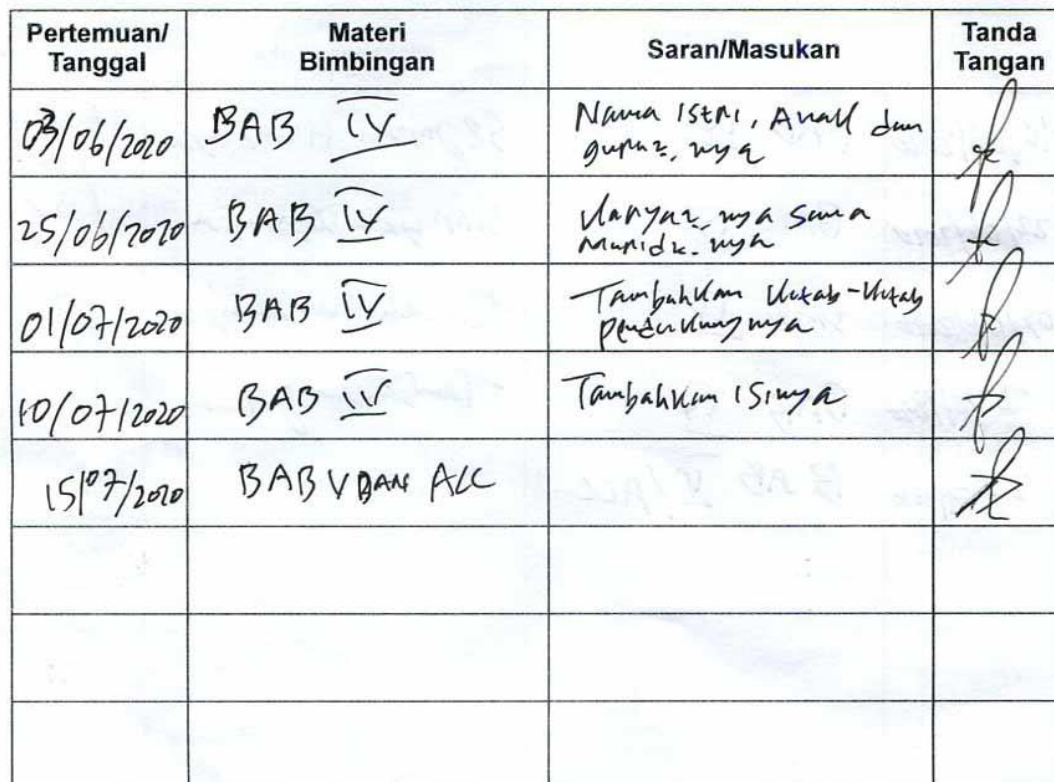 Pertemuan/
Tanggal
Materi
Bimbingan
Saran/Masukan
Tanda
Tangan
03/06/2020 BAB IV Nama Istri, Anak dan
guru2, nya
25/06/2020 BAB IV Karya2, nya sama
Murid2. nya
01/07/2020 BAB IV Tambahkan Kitab-Kitab
pendukungnya
10/07/2020 BAB IV Tambahkan Isinya
15/07/2020 BAB V DAN ACC